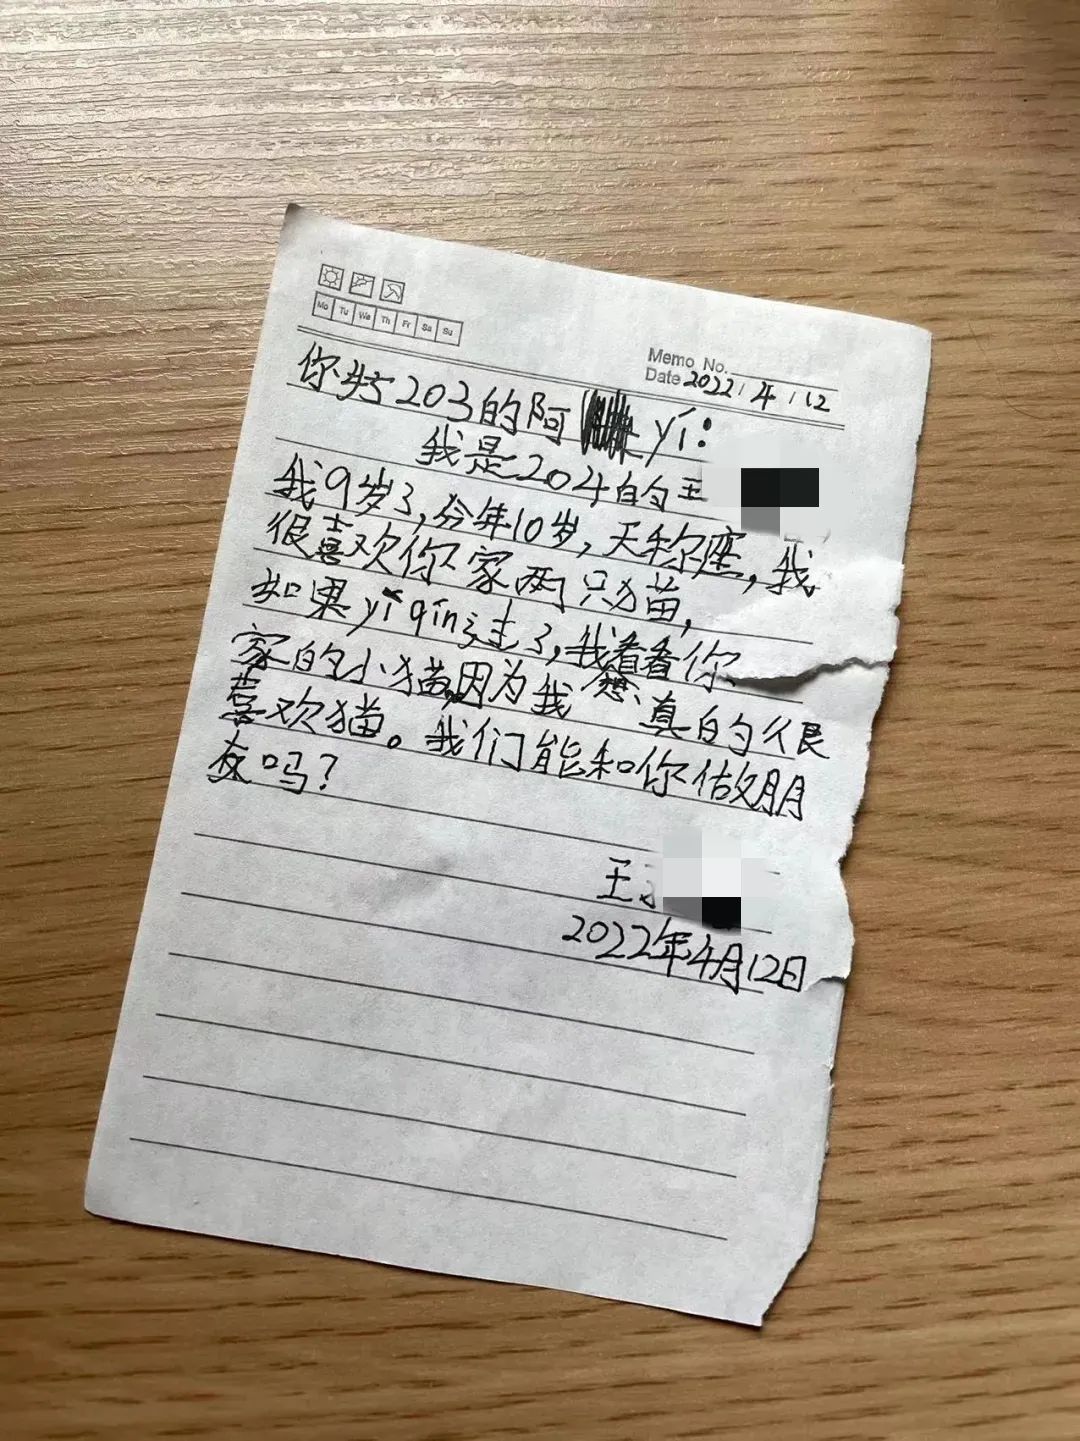 Mo Tu We Th Fr Sa Su
Memo No.
Date 2022/4/12
你好203的阿 yí：
我是204的王
我9岁了，今年10岁，天秤座，我
很喜欢你家两只猫，
如果yì qín过走了，我看看你
家的小猫，因为我想真的很
喜欢猫。我们能和你做朋
友吗？
王
2022年4月12日